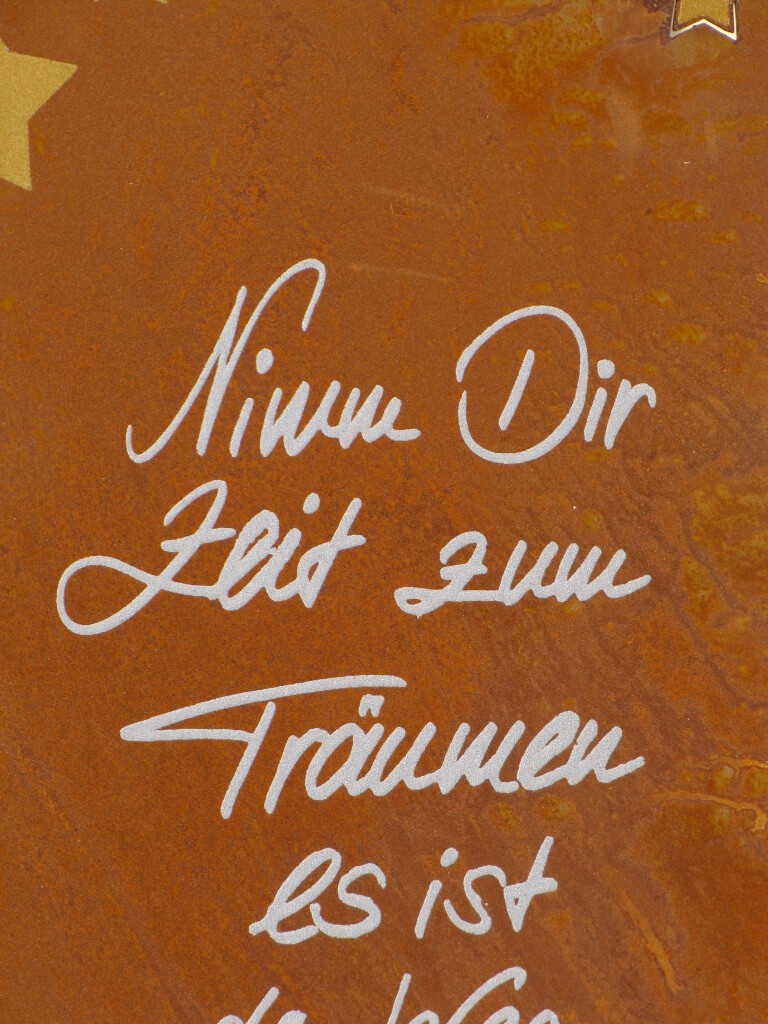 Nimm Dir
Zeit zum
Träumen
es ist